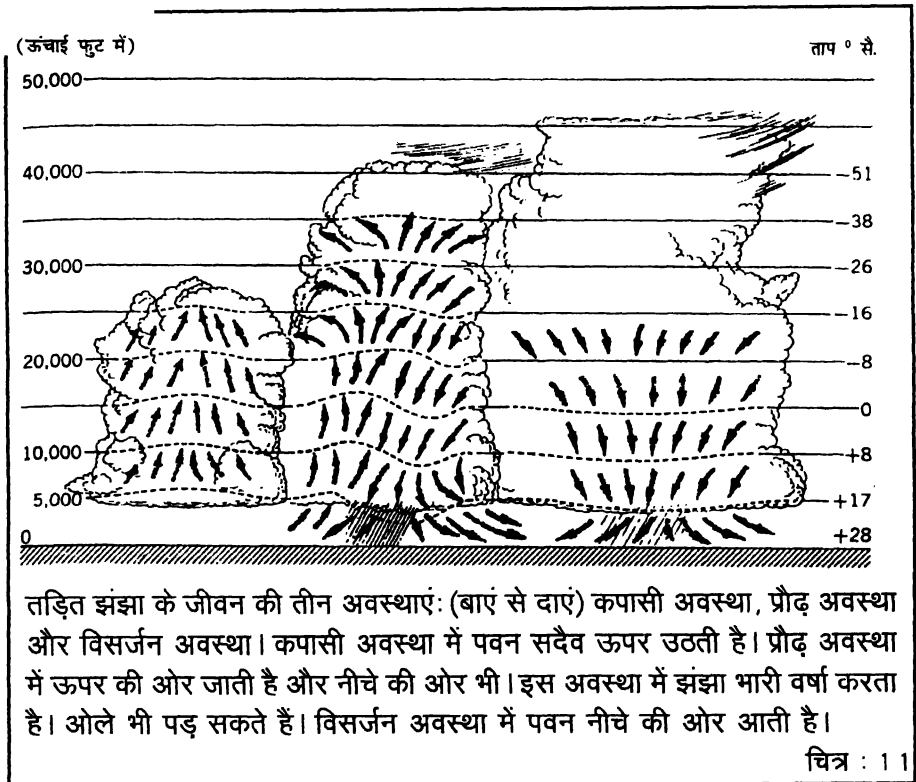 (ऊंचाई फुट में) ताप ° सै.
50,000
40,000 –51
–38
30,000 –26
–16
20,000 –8
0
10,000 +8
5,000 +17
0 +28
तड़ित झंझा के जीवन की तीन अवस्थाएं: (बाएं से दाएं) कपासी अवस्था, प्रौढ़ अवस्था
और विसर्जन अवस्था। कपासी अवस्था में पवन सदैव ऊपर उठती है। प्रौढ़ अवस्था
में ऊपर की ओर जाती है और नीचे की ओर भी। इस अवस्था में झंझा भारी वर्षा करता
है। ओले भी पड़ सकते हैं। विसर्जन अवस्था में पवन नीचे की ओर आती है।
चित्र : 11